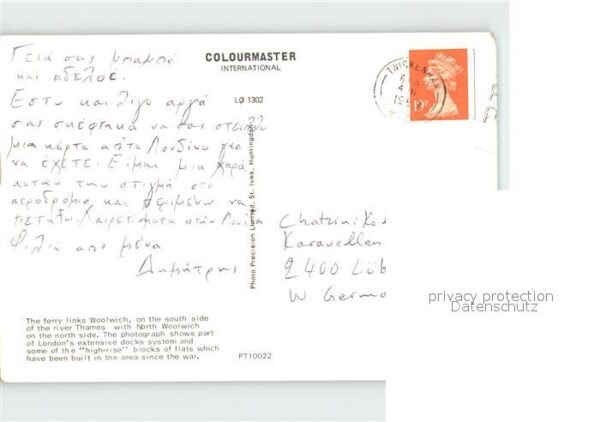 Γειά σας μπαμπά
και αδελφέ.
Εστω και λίγο αργά
σας σκέφτηκα να σας στείλω
μια κάρτα απ'το Λονδίνο για
να έχετε. Είμαι μια χαρά
αυτήν την στιγμή στο
αεροδρόμιο και περιμένω να
πετάξω. Χαιρετίσματα στην
Φιλιά από μένα
Δημήτρης
COLOURMASTER
INTERNATIONAL
LO 1302
Photo Precision Limited, St. Ives, Huntingdon
TWICKENHAM
19P
Karavellen
2400 Lüb
W Germa
privacy protection
Datenschutz
The ferry links Woolwich, on the south side
of the river Thames with North Woolwich
on the north side. The photograph shows part
of London's extensive docks system and
some of the "high-rise" blocks of flats which
have been built in the area since the war.
PT10022